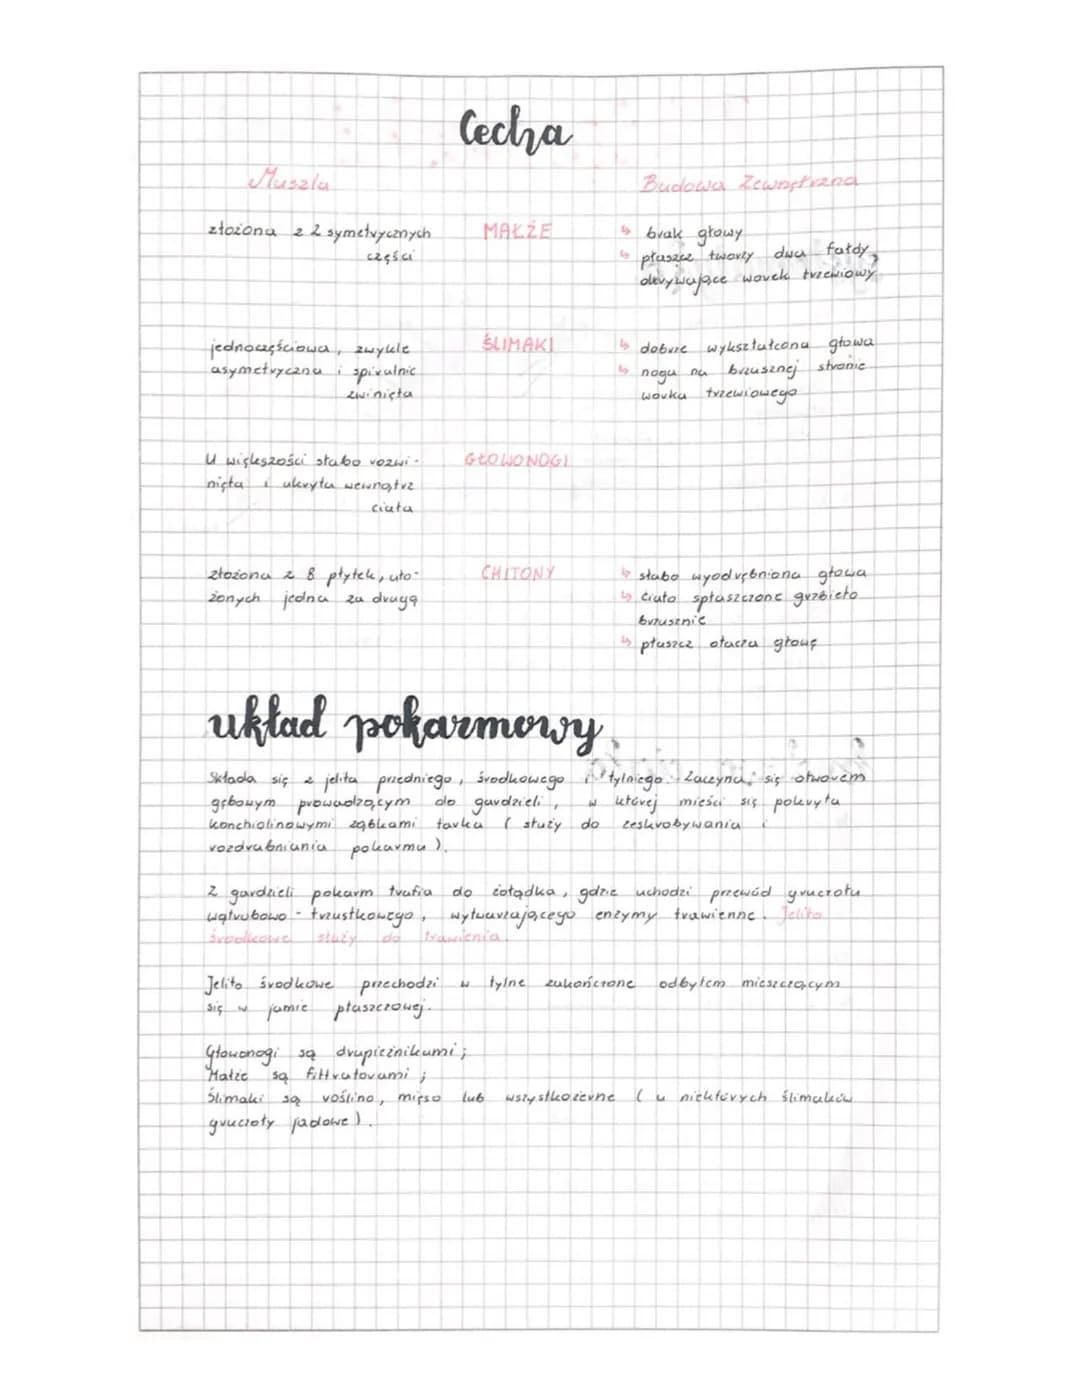 Cecha
Muszla
Budowa Zewnętrzna
złożona z 2 symetrycznych
części
MAŁŻE
↳ brak głowy
↳ płaszcz tworzy dwa fałdy,
okrywające worek trzewiowy
jednoczęściowa, zwykle
asymetryczna i spiralnie
zwinięta
ŚLIMAKI
↳ dobrze wykształcona głowa
↳ noga na brzusznej stronie
worka trzewiowego
U większości słabo rozwi-
nięta i ukryta wewnątrz
ciała
GŁOWONOGI
złożona z 8 płytek, uło-
żonych jedna za drugą
CHITONY
↳ słabo wyodrębniona głowa
↳ ciało spłaszczone grzbieto
brzusznie
↳ płaszcz otacza głowę
układ pokarmowy
Składa się z jelita przedniego, środkowego i tylniego. Zaczyna się otworem
gębowym prowadzącym do gardzieli, w której mieści się pokryta
konchiolinowymi ząbkami tarka (służy do zeskrobywania i
rozdrabniania pokarmu).
Z gardzieli pokarm trafia do żołądka, gdzie uchodzi przewód gruczołu
wątrobowo-trzustkowego, wytwarzającego enzymy trawienne. Jelito
środkowe służy do trawienia.
Jelito środkowe przechodzi w tylne zakończone odbytem mieszczącym
się w jamie płaszczowej.
Głowonogi są drapieżnikami;
Małże są filtratorami;
Ślimaki są roślino, mięso lub wszystkożerne (u niektórych ślimaków
gruczoły jadowe).